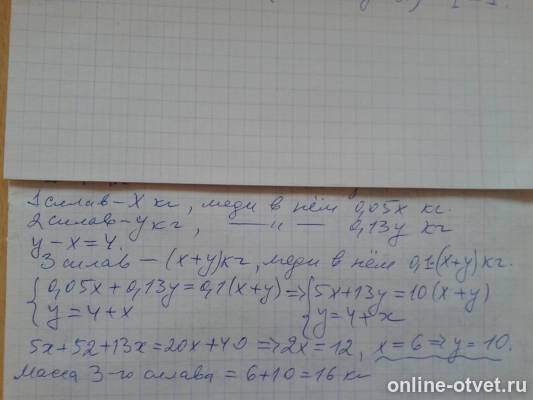 1 сплав - x кг, меди в нём 0,05x кг.
2 сплав - y кг, —„— 0,13y кг
y - x = 4.
3 сплав - (x+y) кг, меди в нём 0,1(x+y) кг.
{0,05x + 0,13y = 0,1(x+y) => {5x+13y = 10(x+y)
{y = 4+x {y = 4+x
5x+52+13x=20x+40 => 2x=12, x=6 => y=10.
Масса 3-го сплава = 6+10=16 кг
online-otvet.ru